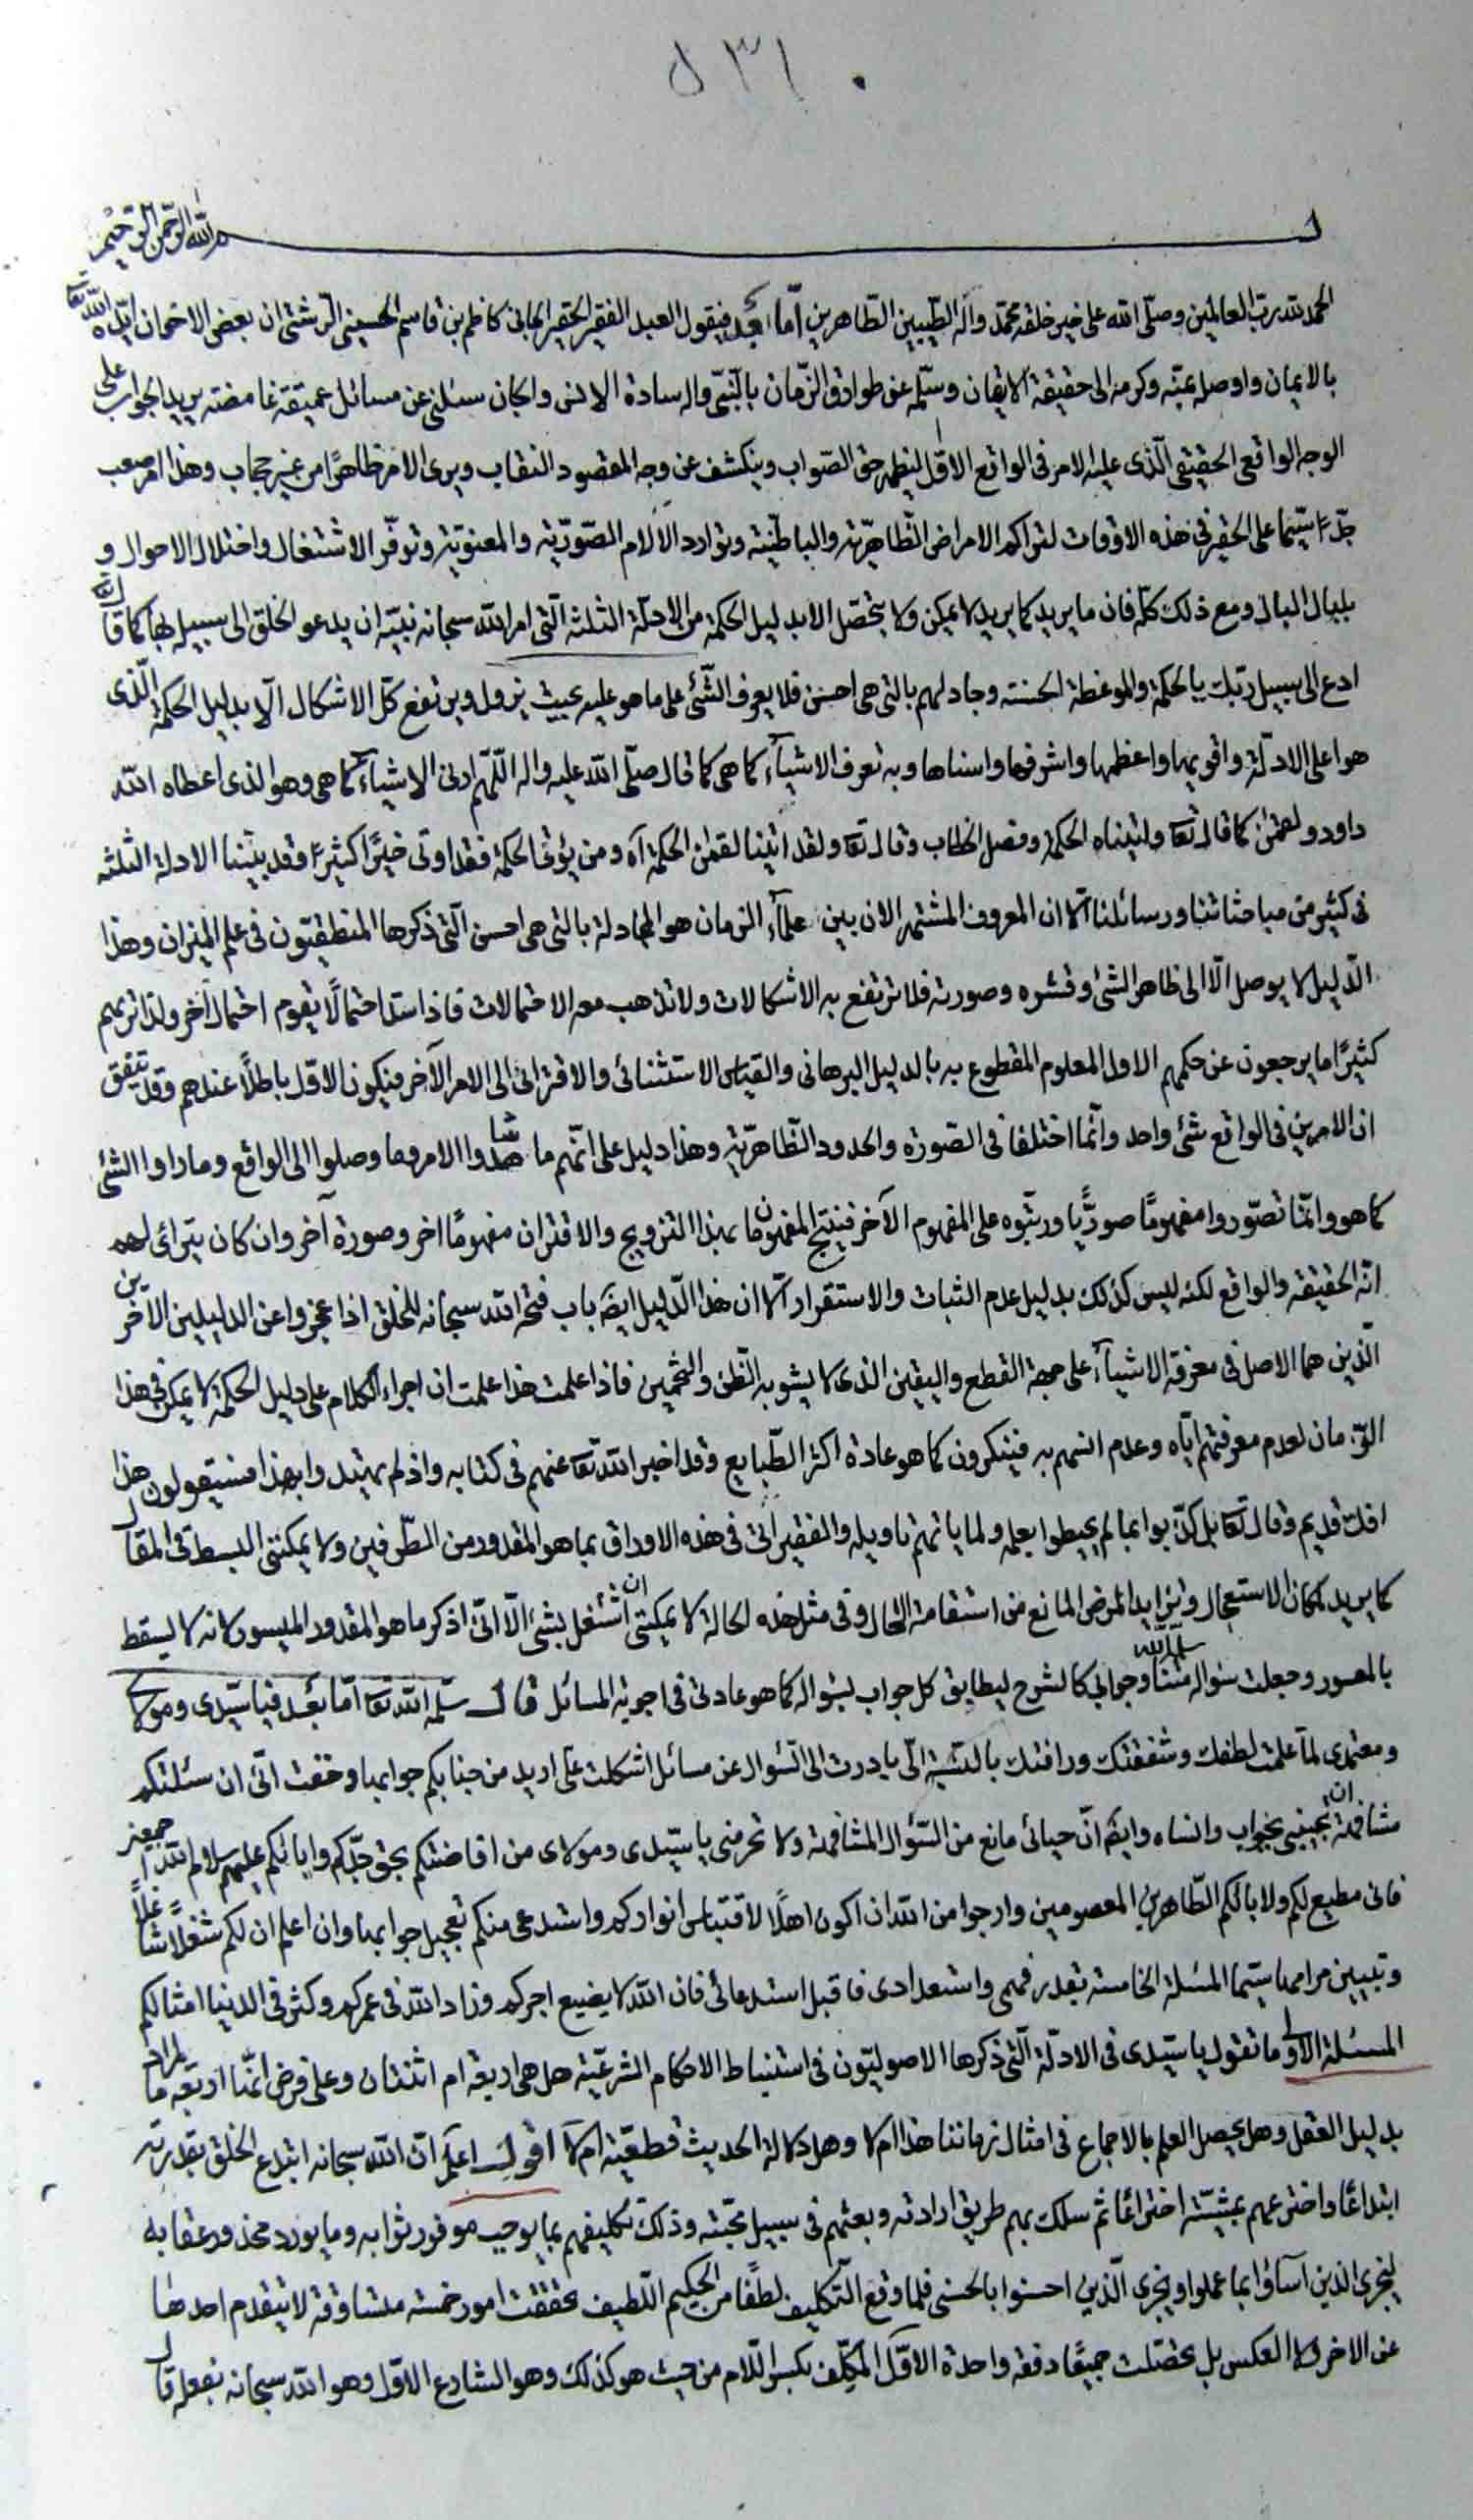 ٣١ ل
بسم الله الرحمن الرحيم
الحمد لله رب العالمين وصلّى الله على خير خلقه محمّد وآله الطّيبين الطّاهرين أمّا بعد فيقول العبد الفقير الحقير الجانى كاظم بن قاسم الحسينى الرّشتى ان بعض الاخوان ايّده الله تعا
بالايمان واوصله بمنّه وكرمه الى حقيقة الايقان وسلّمه عن طوارق الزّمان بالنّبىّ واله سادة الانس والجان سئلنى عن مسائل عميقة غامضته يريد الجواب على
الوجه الواقعى الحقيقى الّذى عليه الامر فى الواقع الاوّل ليظهر حق الصّواب وينكشف عن وجه المقصود النقاب ويرى الامر ظاهرًا من غير حجاب وهذا امر صعب
جدّاً سيّما على الحقير فى هذه الاوقات لتراكم الامراض الظّاهريّة والباطنيّة وتوارد الآلام الصّوريّة والمعنويّة وتوفّر الاشتغال واختلال الاحوال و
بلبال البال ومع ذلك كلّه فان ما يريد كما يريد لا يمكن ولا يتحصّل الا بدليل الحكمة من الادلّة الثلثة الّتى امر الله سبحانه نبيّه ان يدعو الخلق الى سبيله بها كما قال تعا
ادع الى سبيل ربّك بالحكمة والموعظة الحسنة وجادلهم بالتى هى احسن فلا يعرف الشّئ على ما هو عليه بحيث يزول ويرتفع كلّ الاشكال الّا بدليل الحكمة الّذى
هو اعلى الادلّة واقويها واعظمها واشرفها واسناها وبه تعرف الاشيآء كما هى كما قال صلّى الله عليه واله اللّهم ارنى الاشيآء كما هى وهو الذى اعطاه الله
داود ولقمٰن كما قال تعا واتيناه الحكمة وفصل الخطاب وقال تعا ولقد اتينا لقمٰن الحكمة آه ومن يؤت الحكمة فقد اوتى خيرًا كثيرًا وقد بيّنّا الادلة الثلثه
فى كثير من مباحثاتنا ورسائلنا الّا ان المعروف المشتهر الان بين علمآء الزمان هو المجادلة بالتى هى احسن الّتى ذكرها المنطقيّون فى علم الميزان وهذا
الدّليل لا يوصل الّا الى ظاهر الشئ وقشوه وصورته فلا ترتفع به الاشكالات ولا تذهب معه الاحتمالات فاذا سدّ احتمالًا يقوم احتمال آخر ولذا تريهم
كثيرًا ما يرجعون عن حكمهم الاول المعلوم المقطوع به بالدليل البرهانى والقياس الاستثنائى والاقترانى الى الامر الآخر فيكون الاوّل باطلًا عندهم وقد يتفق
ان الامرين فى الواقع شئ واحد وانّما اختلفا فى الصّورة والحدود الظّاهريّة وهذا دليل على انّهم ما شاهدوا الامر وما وصلوا الى الواقع وما راوا الشئ
كما هو وانّما تصّوروا مفهومًا صوريًّا ورتّبوه على المفهوم الآخر فينتج المفهومان بهذا التزويج والاقتران مفهومًا اخر وصورة آخر وان كان يترائى لهم
انّه الحقيقة والواقع لكنه ليس كذلك بدليل عدم الثبات والاستقرار الّا ان هذا الدّليل ايضًا باب فتحه الله سبحانه للخلق اذا عجزوا عن الدليلين الآخرين
الّذين هما الاصل فى معرفة الاشيآء على جهة القطع واليقين الذى لا يشوبه الظّن والتّخمين فاذا علمت هذا علمت ان اجراء الكلام على دليل الحكمة لا يمكن فى هذا
الزّمان لعدم معرفتهم ايّاه وعدم انسهم به فينكرون كما هو عادة اكثر الطّبايع وقد اخبر الله تعا عنهم فى كتابه واذ لم يهتدوا به فسيقولون هذا
افك قديم وقال تعا بل كذّبوا بما لم يحيطوا بعلمه ولما ياتهم تاويله والفقير اتى فى هذه الاوراق بما هو المقدور من الطّرفين ولا يمكننى البسط فى المقال
كما يريد لمكان الاستعجال وتزايد المرض المانع من استقامة الحال وفى مثل هذه الحالة لا يمكننى ان اشتغل بشئ الّا انّى اذكر ما هو المقدور الميسور لانه لا يسقط
بالمعسور وجعلت سواله سلّمه الله متنا وجوابى كالشرح ليطابق كل جواب لسواله كما هو عادتى فى اجوبة المسائل قال سلّمه الله تعا امّا بعد فيا سيّدى ومولاى
ومعتمدى لمّا علمت لطفك وشفقتك ورافتك بالنسبة الىّ بادرت الى السّوال عن مسائل اشكلت علىّ اريد من جنابكم جوابها وخفت انّى ان سئلتكم
مشافهة ان تجيبنى بجواب وانساه وايضًا انّ حيائى مانع من السّؤال المشافهة ولا تحرمنى يا سيّدى ومولاى من افاضتكم بحق جدّكم وابائكم عليهم سلام الله اجمعين
فانى مطيع لكم ولابائكم الطّاهرين المعصومين وارجوا من الله ان اكون اهلًا لاقتباس انواركم واستدعى منكم تعجيل جوابها وان اعلم ان لكم شغلًا شاغلًا
وتبيين مرامها سيّما المسئلة الخامسة بقدر فهمى واستعدادى فاقبل استدعائى فان الله لا يضيع اجركم وزاد الله فى عمركم وكثر فى الدنيا امثالكم
المسئلة الاولى ما تقول يا سيّدى فى الادلّة الّتى ذكرها الاصوليّون فى استنباط الاحكام الشرعيّة هل هى اربعة ام اثنتان وعلى فرض انّها اربعة ما المراد
بدليل العقل وهل يحصل العلم بالاجماع فى امثال زماننا هذا ام لا وهل دلالة الحديث قطعيّة ام لا اقول اعلم انّ الله سبحانه ابتدع الخلق بقدرته
ابتداعًا واخترعهم بمشيّته اختراعًا ثم سلك بهم طريق ارادته وبعثهم فى سبيل محبّته وذلك تكليفهم بما يوجب موفور ثوابه وما يورد محذور عقابه
ليجزى الذين اسآؤا بما عملوا ويجزى الّذين احسنوا بالحسنى فلما وقع التّكليف لطفًا من الحكيم اللّطيف تحققت امور خمسة متساوقة لا يتقدم احدها
عن الاخر ولا العكس بل تحصّلت جميعًا دفعة واحدة الاوّل المكلّف بكسر اللّام من حيث هو كذلك وهو الشارع الاوّل وهو الله سبحانه بفعله قال